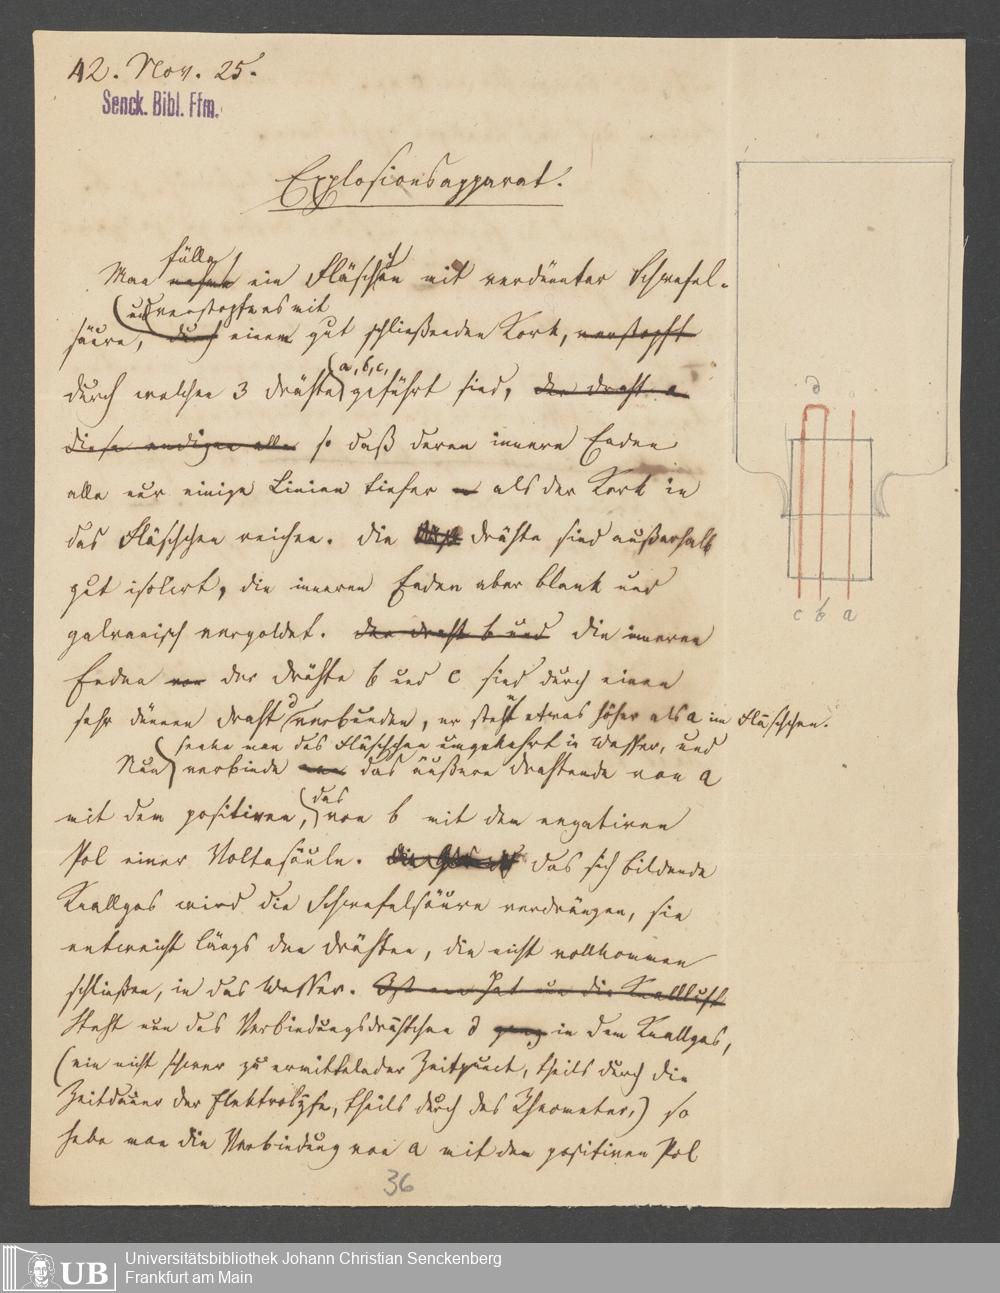 42. Nov. 25.
Senck. Bibl. Ffm.
Explosionsapparat.
fülle
Man nehme ein Fläschchen mit verdünnter Schwefel-
und verstopfe es mit
säure, durch einem gut schließenden Kork, verstopft
a, b, c,
durch welchen 3 Drähte geführt sind, der Draht a
diese endigen alle so daß deren innere Enden
alle nur einige Linien tiefer als der Kork in
das Fläschchen reichen. Die Drähte sind außerhalb
gut isolirt, die inneren Enden aber blank und
galvanisch vergoldet. Der Draht b und die inneren
Enden von der Drähte b und c sind durch einen
sehr dünnen Draht d verbunden, er steht etwas höher als a im Fläschchen.
senke man das Fläschchen umgekehrt in Wasser, und
Nun verbinde man das äußere Drahtende von a
das
mit dem positiven, von b mit dem negativen
Pol einer Voltasäule. Das sich bildende
Knallgas wird die Schwefelsäure verdrängen, sie
entweicht längs den Drähten, die nicht vollkommen
schließen, in das Wasser. Ist nun die Knallluft
Steht nun das Verbindungsdrähtchen d ganz in dem Knallgas,
(ein nicht schwer zu ermittelnder Zeitpunct, theils durch die
Zeitdauer der Elektrolyse, theils durch das Rheometer,) so
hebe man die Verbindung von a mit dem positiven Pol
36
d
a
c b a
Universitätsbibliothek Johann Christian Senckenberg
UB Frankfurt am Main